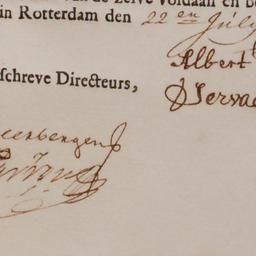 van de zelve voldaan en be
in Rotterdam den 22 en Júly
Albert
schreve Directeurs,
DServa
eerbergen